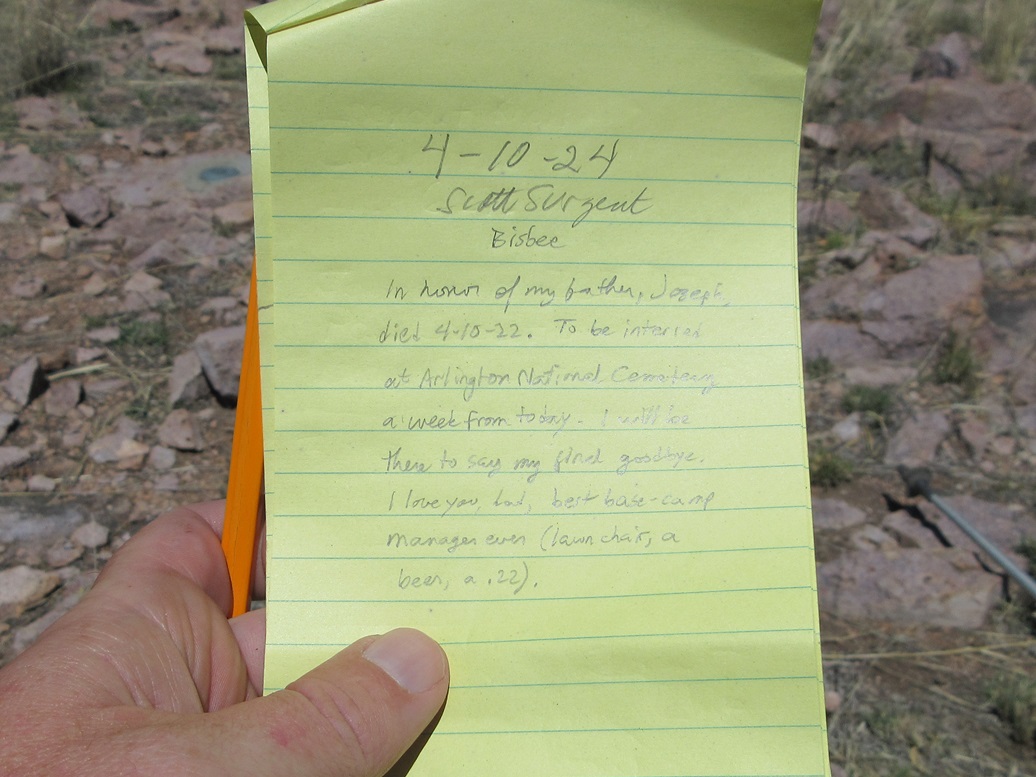 4-10-24
Scott Surgent
Bisbee
In honor of my father, Joseph,
died 4-10-22. To be interred
at Arlington National Cemitery
a week from today. I will be
there to say my final goodbye.
I love you, dad, best base-camp
manager ever (lawn chair, a
beer, a .22).